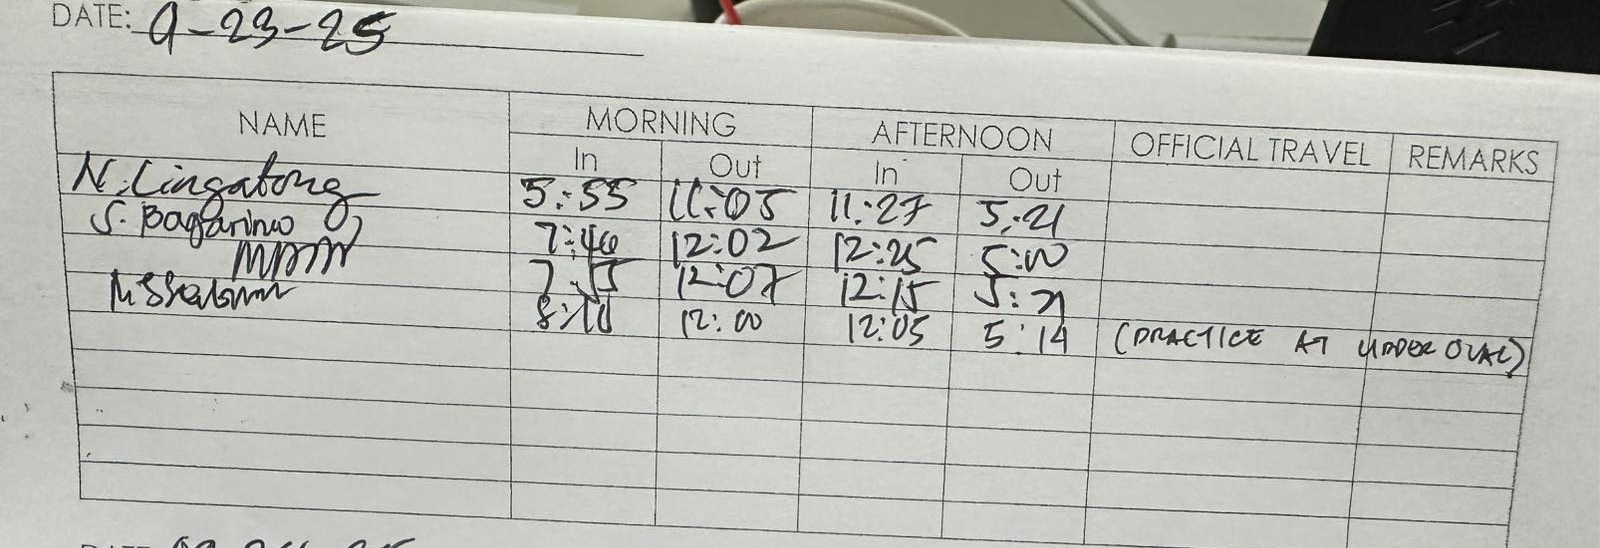 DATE: 9-23-25
NAME MORNING AFTERNOON OFFICIAL TRAVEL REMARKS
In Out In Out
N. Lingatong 5:55 11:05 11:27 5:21
S. Bagarino 7:46 12:02 12:25 5:00
7:55 12:07 12:15 5:21
8:10 12:00 12:05 5:14 (PRACTICE AT UPPER OVAL)